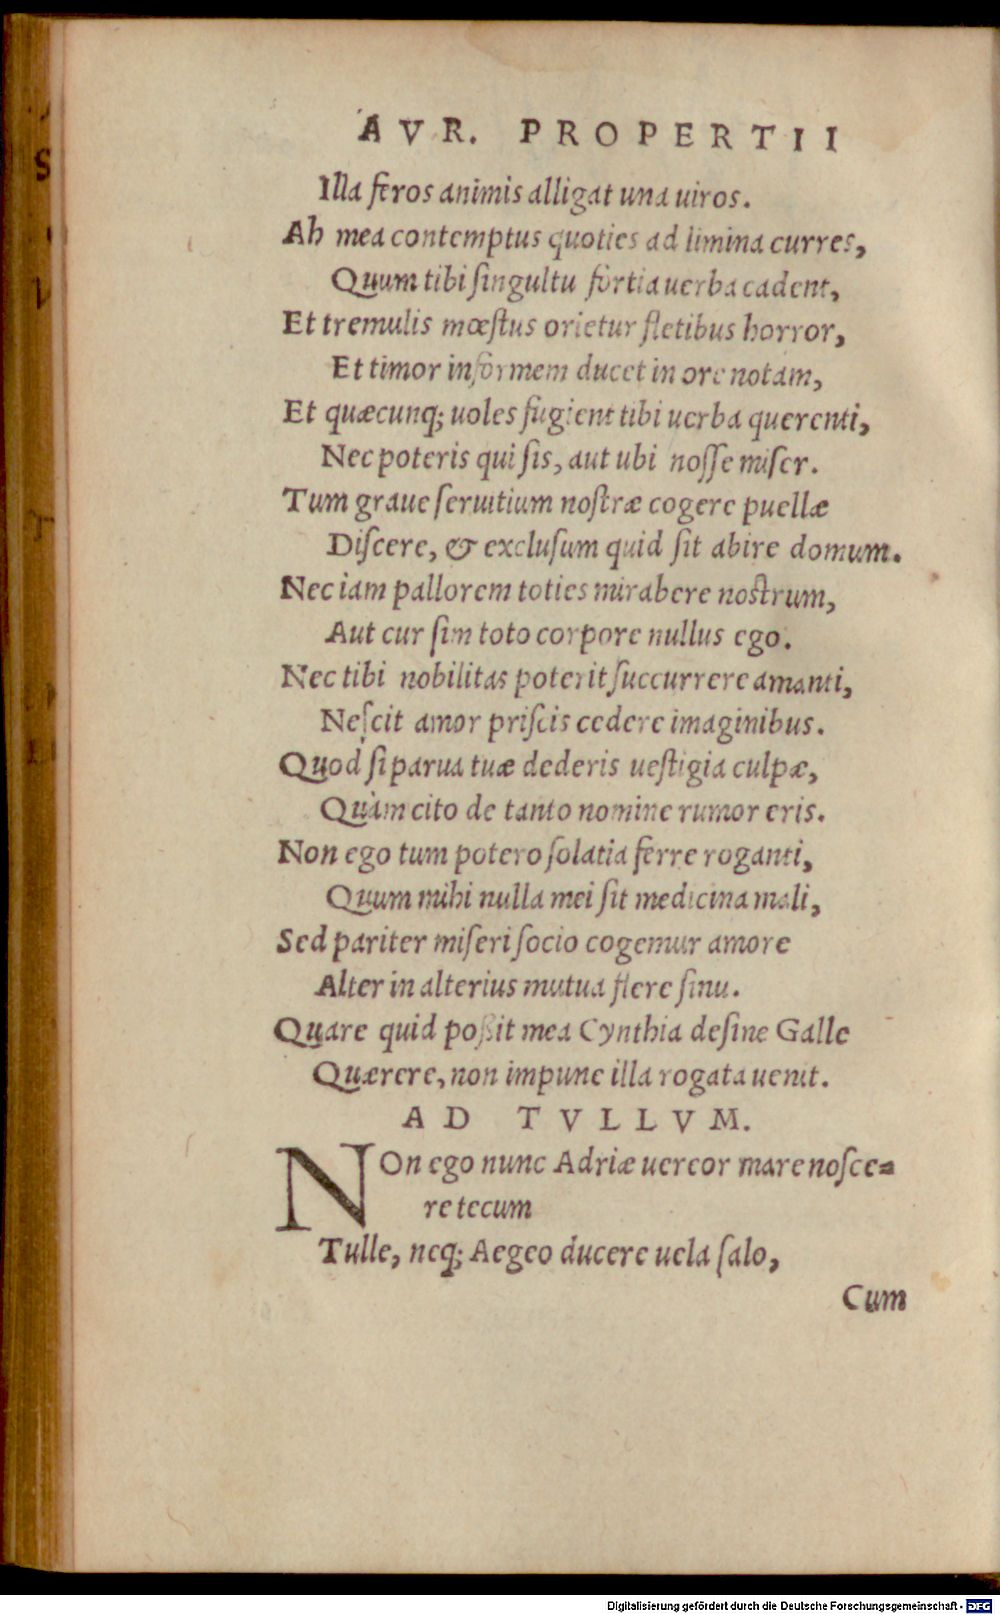 AVR. PROPERTII
Illa feros animis alligat una uiros.
Ah mea contemptus quoties ad limina curres,
Quum tibi singultu fortia uerba cadent,
Et tremulis mœstus orietur fletibus horror,
Et timor informem ducet in ore notam,
Et quæcunq; uoles fugient tibi uerba querenti,
Nec poteris qui sis, aut ubi nosse miser.
Tum graue seruitium nostræ cogere puellæ
Discere, & exclusum quid sit abire domum.
Nec iam pallorem toties mirabere nostrum,
Aut cur sim toto corpore nullus ego.
Nec tibi nobilitas poterit succurrere amanti,
Nescit amor priscis cedere imaginibus.
Quod si parua tuæ dederis uestigia culpæ,
Quàm cito de tanto nomine rumor eris.
Non ego tum potero solatia ferre roganti,
Quum mihi nulla mei sit medicina mali,
Sed pariter miseri socio cogemur amore
Alter in alterius mutua flere sinu.
Quare quid poßit mea Cynthia desine Galle
Quærere, non impune illa rogata uenit.
AD TVLLVM.
NOn ego nunc Adriæ uereor mare nosce=
re tecum
Tulle, neq; Aegeo ducere uela salo,
Cum
Digitalisierung gefördert durch die Deutsche Forschungsgemeinschaft - DFG